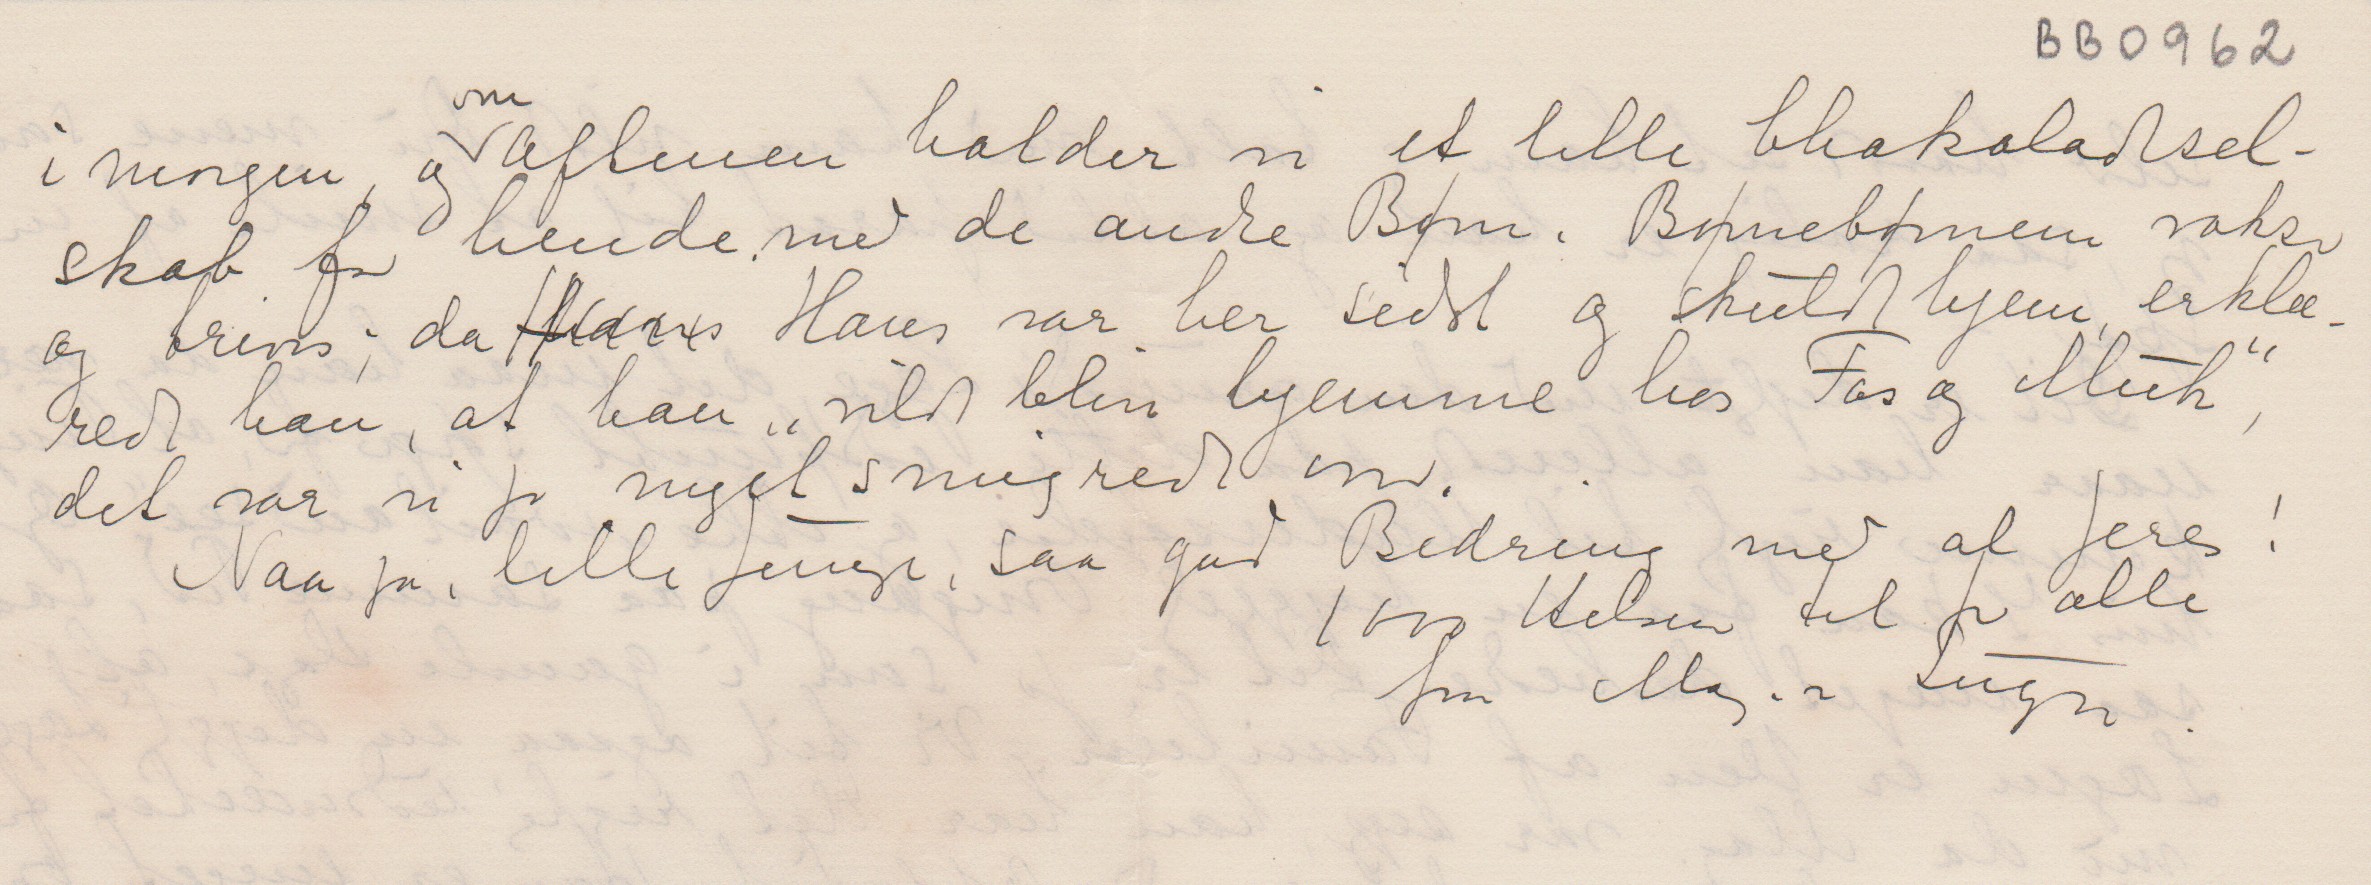 BB0962
i morgen, og om Aftenen holder vi et lille Chokoladesel-
skab for hende med de andre Børn. Børnebørnene vokser
og trives; da Hans var her sidst og skulde hjem, erklæ-
rede han, at han „vilde bliv hjemme hos Fas og Muk",
det var vi jo meget smigrede over.
Naa ja, lille Junge, saa god Bedring med al Jeres!
1000 Hilsner til Jer alle
fra Mag. og